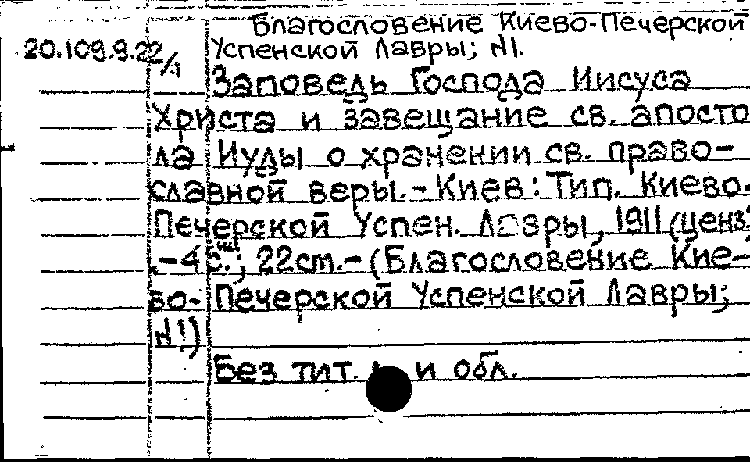 Благословение Киево-Печерской
20.109.9.22/1 Успенской Лавры; №1.
Заповедь Господа Иисуса
Христа и завещание св. апосто
ла Иуды о хранении св. право-
славной веры. - Киев: Тип. Киево-
Печерской Успен. Лавры, 1911 (ценз
.-4 с.; 22см.-(Благословение Кие-
во-Печерской Успенской Лавры;
№1)
Без тит. и обл.